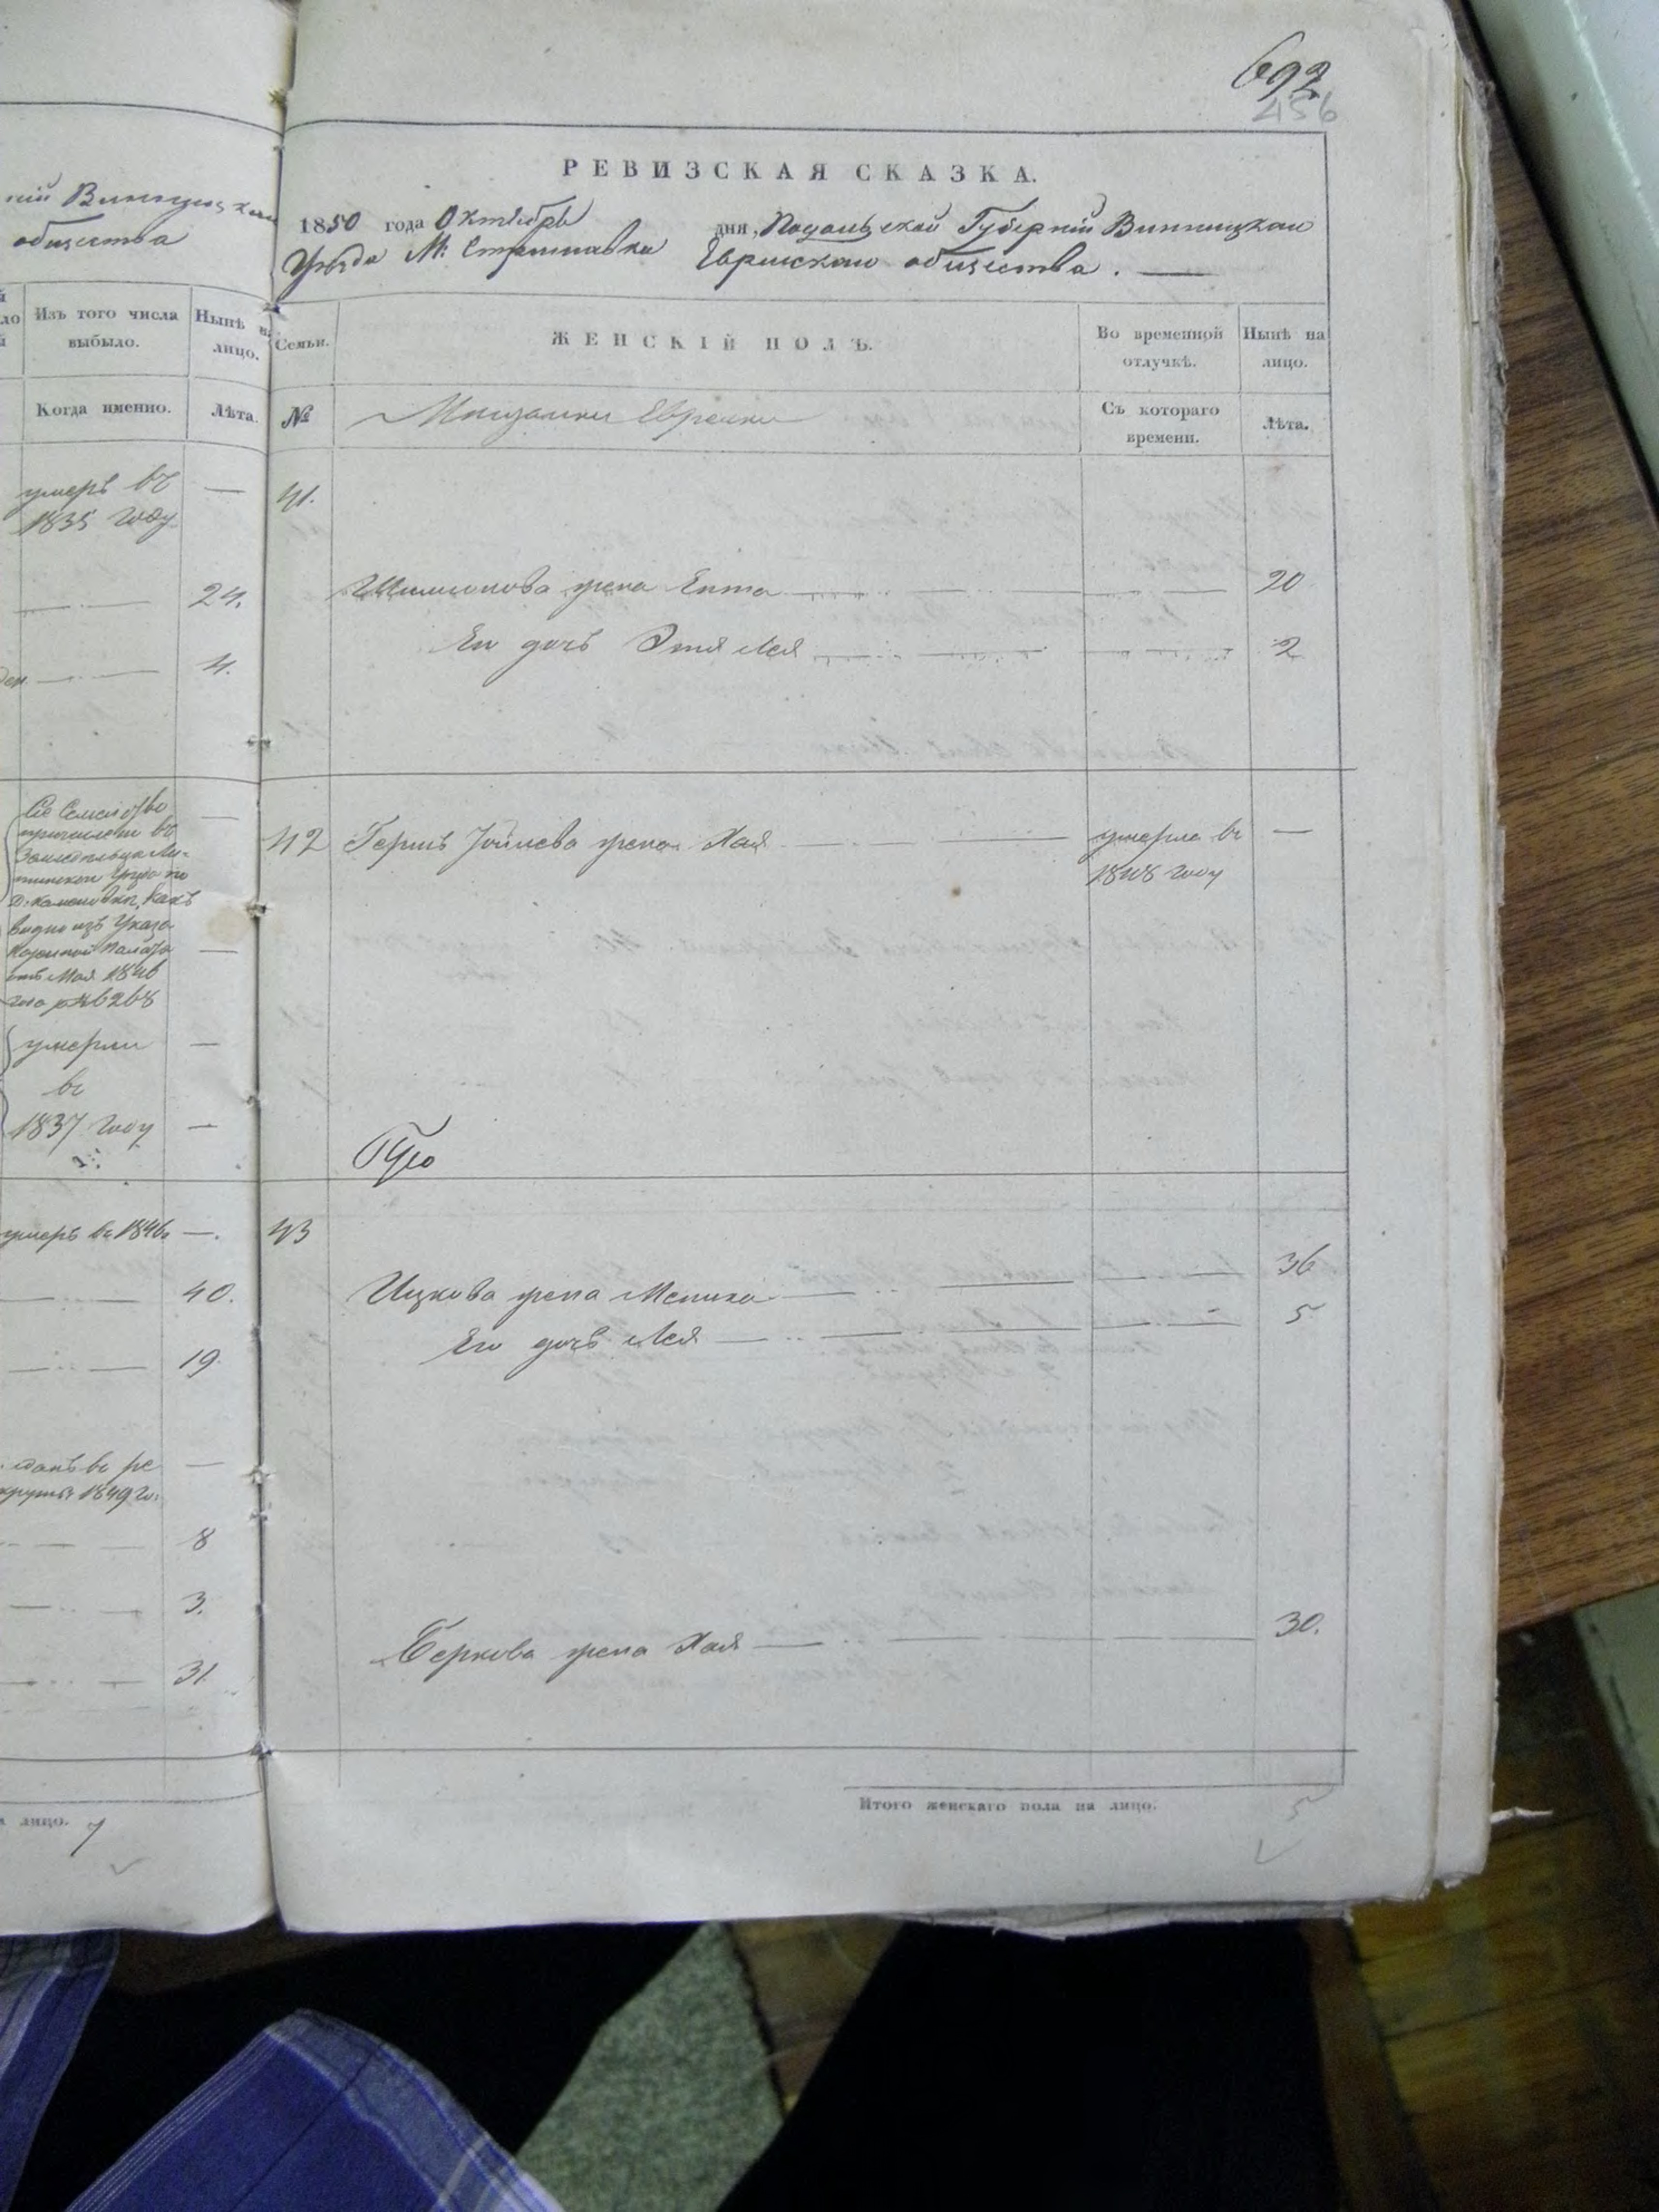 692
456
ній Винницкаго
общества
Изъ того числа выбыло.
Нынѣ на лицо.
Когда именно.
Лѣта.
умеръ въ
1835 году
24.
4.
причисленъ въ
видно изъ Указа
Казенной Палаты
отъ Мая 1846
умерли
въ
1837 году
умеръ въ 1846
40.
19
отданъ въ ре
круты 1849 го
8
3.
31
лицо. 7
РЕВИЗСКАЯ СКАЗКА.
1850 года Октября дня, Подольской Губерніи Винницкаго
Уѣзда М. Стрижавка Еврейскаго общества.
Семьи.
ЖЕНСКІЙ ПОЛЪ.
Во временной отлучкѣ.
Нынѣ на лицо.
№
Мѣщанки Еврейки
Съ котораго времени.
Лѣта.
41.
жена Ента 20
Его дочь Эстя Лея 2
42 Гершъ жена Хая умерла въ —
1848 году
43
Ицкова жена Мениха 36
Его дочь Лея 5
Беркова жена Хая 30.
Итого женскаго пола на лицо. 5